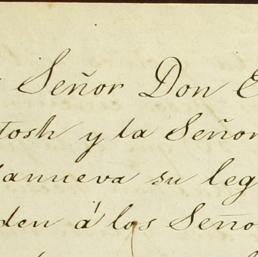 Señor Don E
tosh y la Señor
anueva su leg
den á los Seño